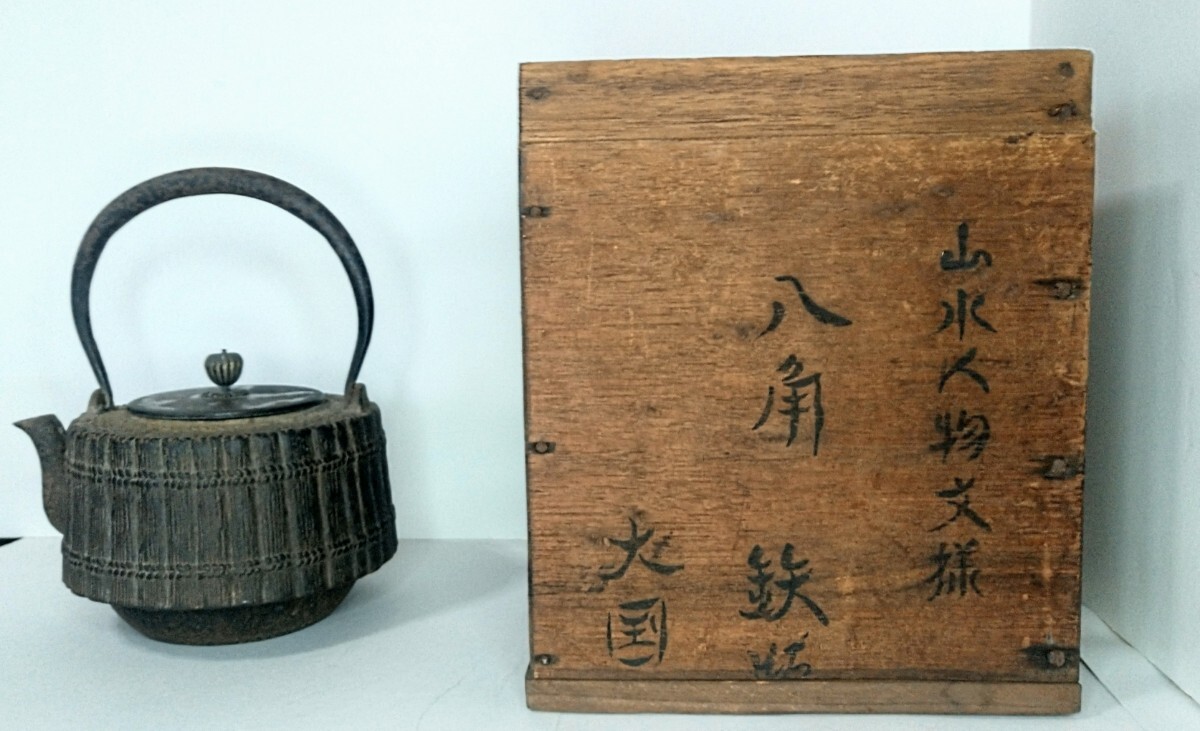 山水人物文様
八角 鉄瓶
大国